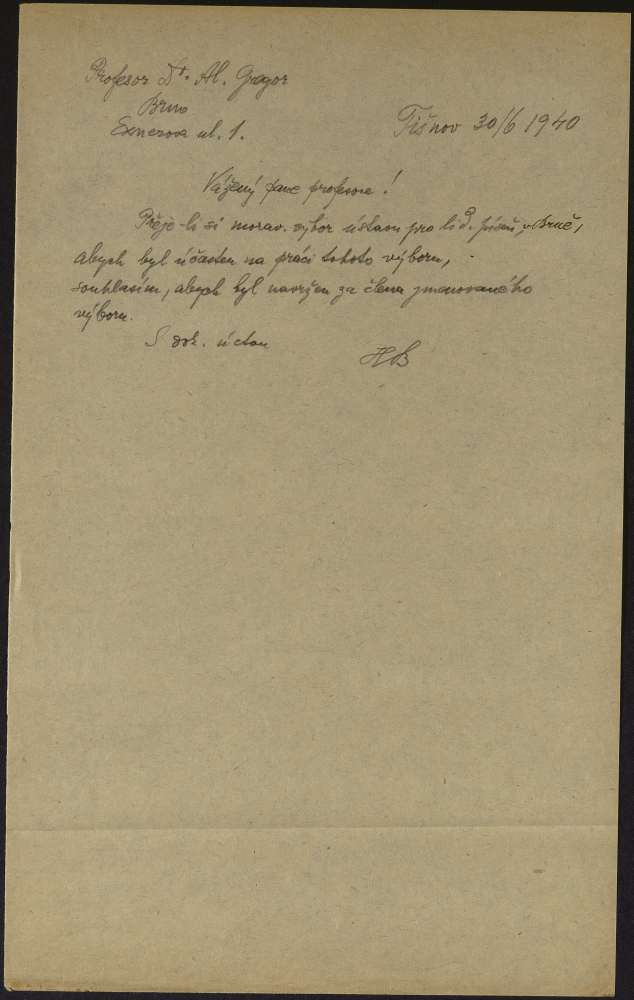 Profesor Dr. Al. Gregor
Brno
Exnerova ul. 1.
Tišnov 30/6 1940
Vážený pane profesore!
Přeje-li si morav. výbor ústavu pro lid. píseň v Brně,
abych byl účasten na práci tohoto výboru,
souhlasím, abych byl navržen za člena jmenovaného
výboru.
S dok. úctou
HB